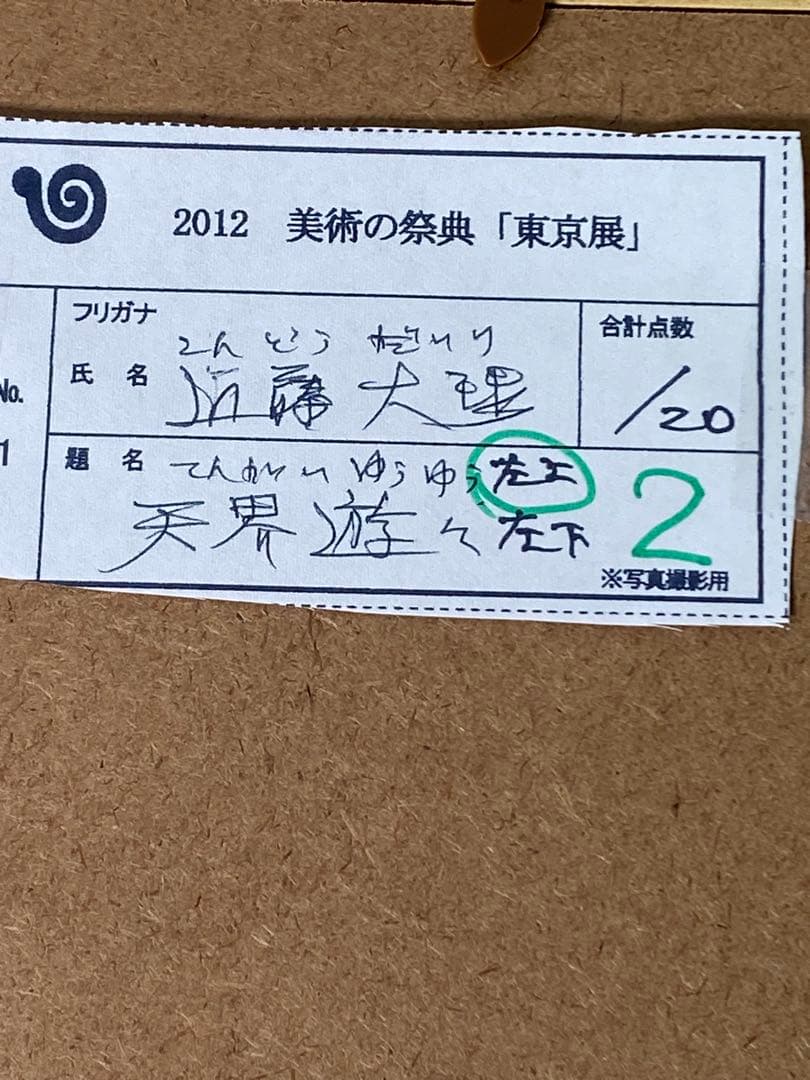 2012 美術の祭典「東京展」
フリガナ
こんどう だいり
氏 名
近藤 大理
合計点数
/20
No.
1
題 名
てんかいゆうゆう
左上
天界遊々
左下
2
※写真撮影用